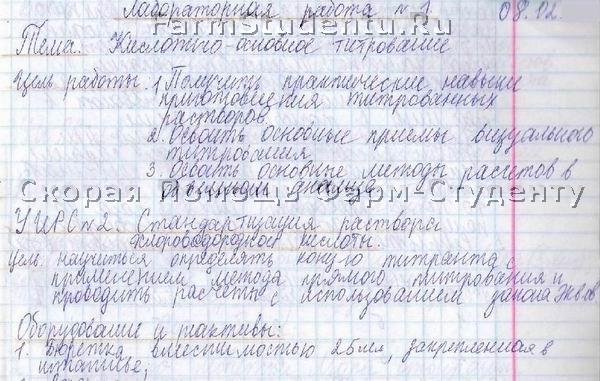 Лабораторная работа №1. 08.02.
Farmstudentu.Ru
Тема. Кислотно-основное титрование
Цель работы. 1. Получить практические навыки
приготовления титрованных
растворов.
2. Освоить основные приемы визуального
титрования
3. Освоить основные методы расчетов в
анализе
Скорая Помощь Фарм-Студенту
УИРС №2. Стандартизация раствора
хлороводородной кислоты.
Цель научиться определять конц-ю титранта с
применением метода прямого титрования и
проводить расчеты с использованием закона экв-ов
Оборудование и реактивы:
1. Бюретка вместимостью 25мл, закрепленная в
штативе,